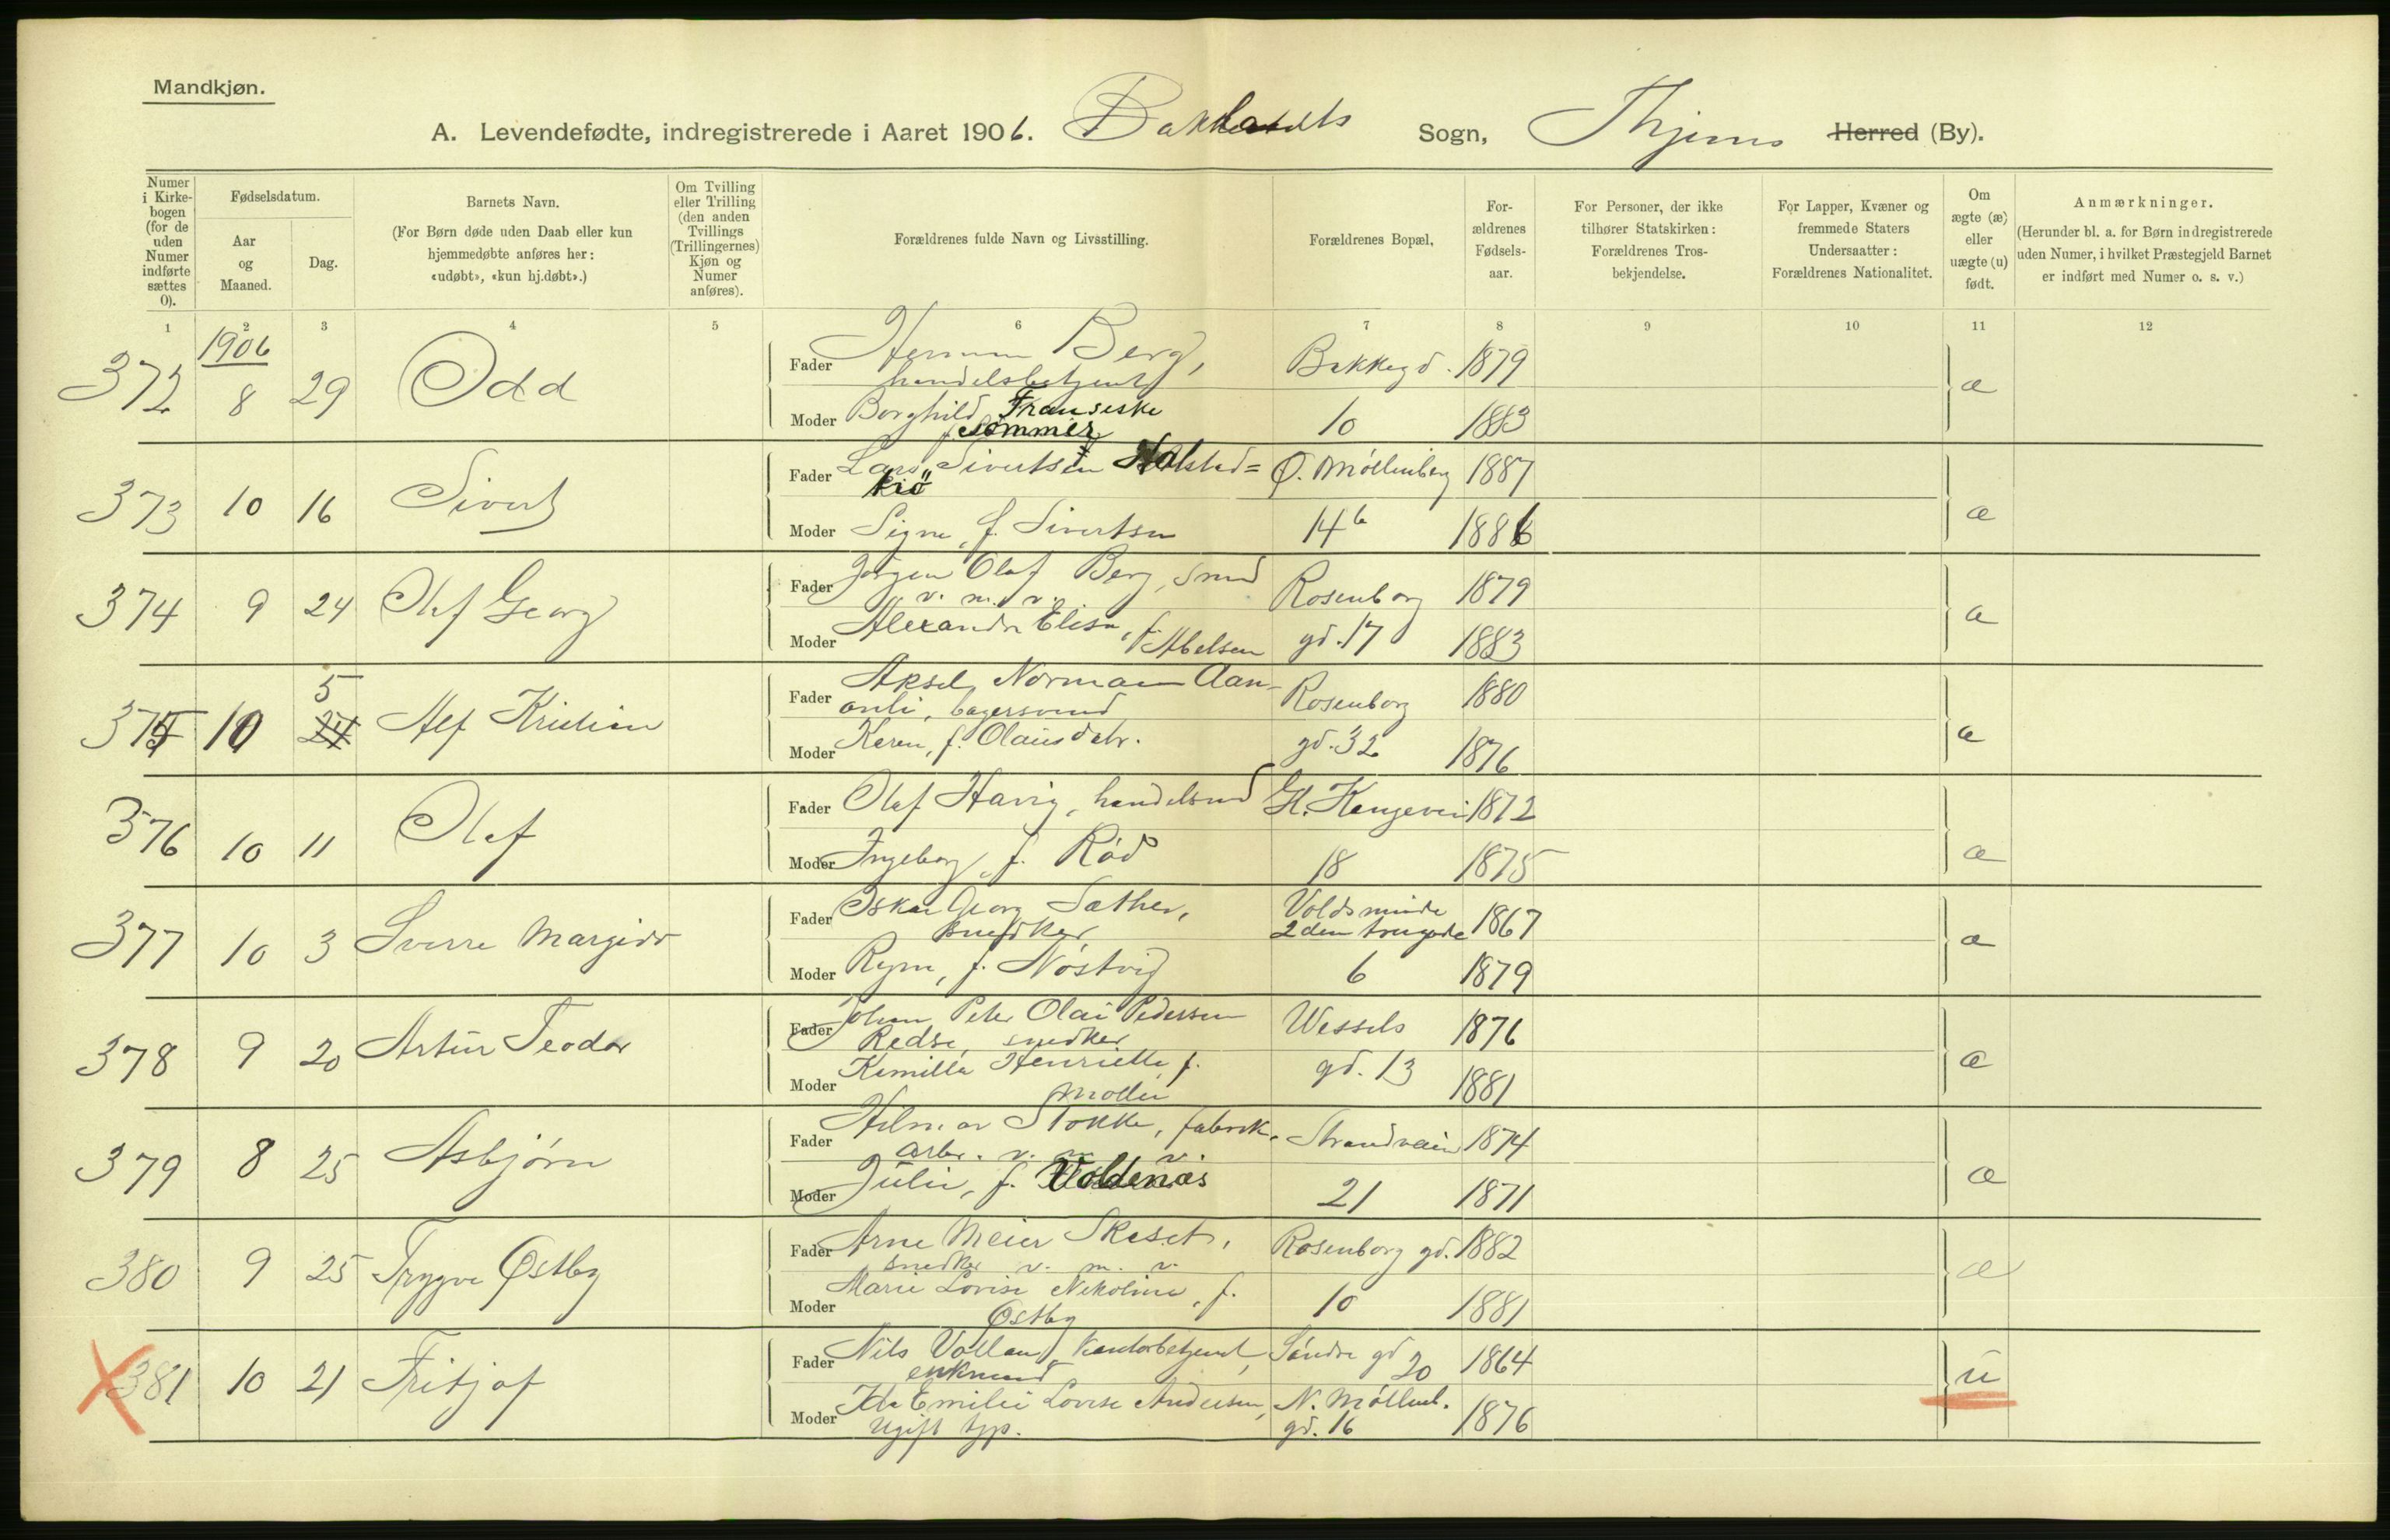 Mandkjøn.
A. Levendefødte, indregistrerede i Aaret 1906. Baklandets Sogn, Thjems Herred (By).
Numer i Kirke-bogen (for de uden Numer indførte sættes 0).
Fødselsdatum.
Aar og Maaned.
Dag.
Barnets Navn.
(For Børn døde uden Daab eller kun hjemmedøbte anføres her: «udøbt», «kun hj.døbt».)
Om Tvilling eller Trilling (den anden Tvillings (Trillingernes) Kjøn og Numer anføres).
Forældrenes fulde Navn og Livsstilling.
Forældrenes Bopæl.
For-ældrenes Fødsels-aar.
For Personer, der ikke tilhører Statskirken: Forældrenes Tros-bekjendelse.
For Lapper, Kvæner og fremmede Staters Undersaatter: Forældrenes Nationalitet.
Om ægte (æ) eller uægte (u) født.
Anmærkninger.
(Herunder bl. a. for Børn indregistrerede uden Numer, i hvilket Præstegjeld Barnet er indført med Numer o. s. v.)
1 2 3 4 5 6 7 8 9 10 11 12
1906
372 8 29 Odd
Fader Herman Berg, Bakkegd. 1879 æ
handelsbetjent
Moder Borghild Franseska 10 1883
f. Sommer
373 10 16 Sivert
Fader Lars Sivertsen Halsted= Ø. Möllenberg 1887 æ
Moder Signe, f. Sivertsen 14b 1886
374 9 24 Olaf Georg
Fader Jørgen Olaf Berg, smed Rosenborg 1879 æ
v. m. v.
Moder Alexandra Elisa, f. Abelsen gd. 17 1883
375 10 5 24 Alf Kristian
Fader Aksel Norman Aan- Rosenborg 1880 æ
onli, bagersvend
Moder Karen, f. Olausdatr. gd. 32 1876
376 10 11 Olaf
Fader Olaf Havig, handelsmd Gl. Kongevei 1872 æ
Moder Ingeborg, f. Röd 18 1875
377 10 3 Sverre Margido
Fader Oskar Georg Sæther, Voldsminde 1867 æ
snedker 2den tvergade
Moder f. Nöstvig 6 1879
378 9 20 Artur Teodor
Fader Johan Peter Olai Pedersen Wessels 1876 æ
snedker
Moder Kamilla Henriette, f. gd. 13 1881
Möller
379 8 25 Asbjörn
Fader Hilmar Stokke, fabrik. Strandveien 1874 æ
arbr. v. m. v.
Moder Julie, f. Voldenäs 21 1871
380 9 25 Trygve Østby
Fader Arne Meier Skaset, Rosenborg gd. 1882 æ
snedker v. m. v.
Moder Marie Lovise Nikoline, f. 10 1881
Østby
381 10 21 Fritjof
Fader Nils Vollan, kontorbetjent, Söndre gd 20 1864 u
enkemand
Moder Ida Emilie Lovise Andersen, N. Möllenb. 1876
Ugift tjp. gd. 16